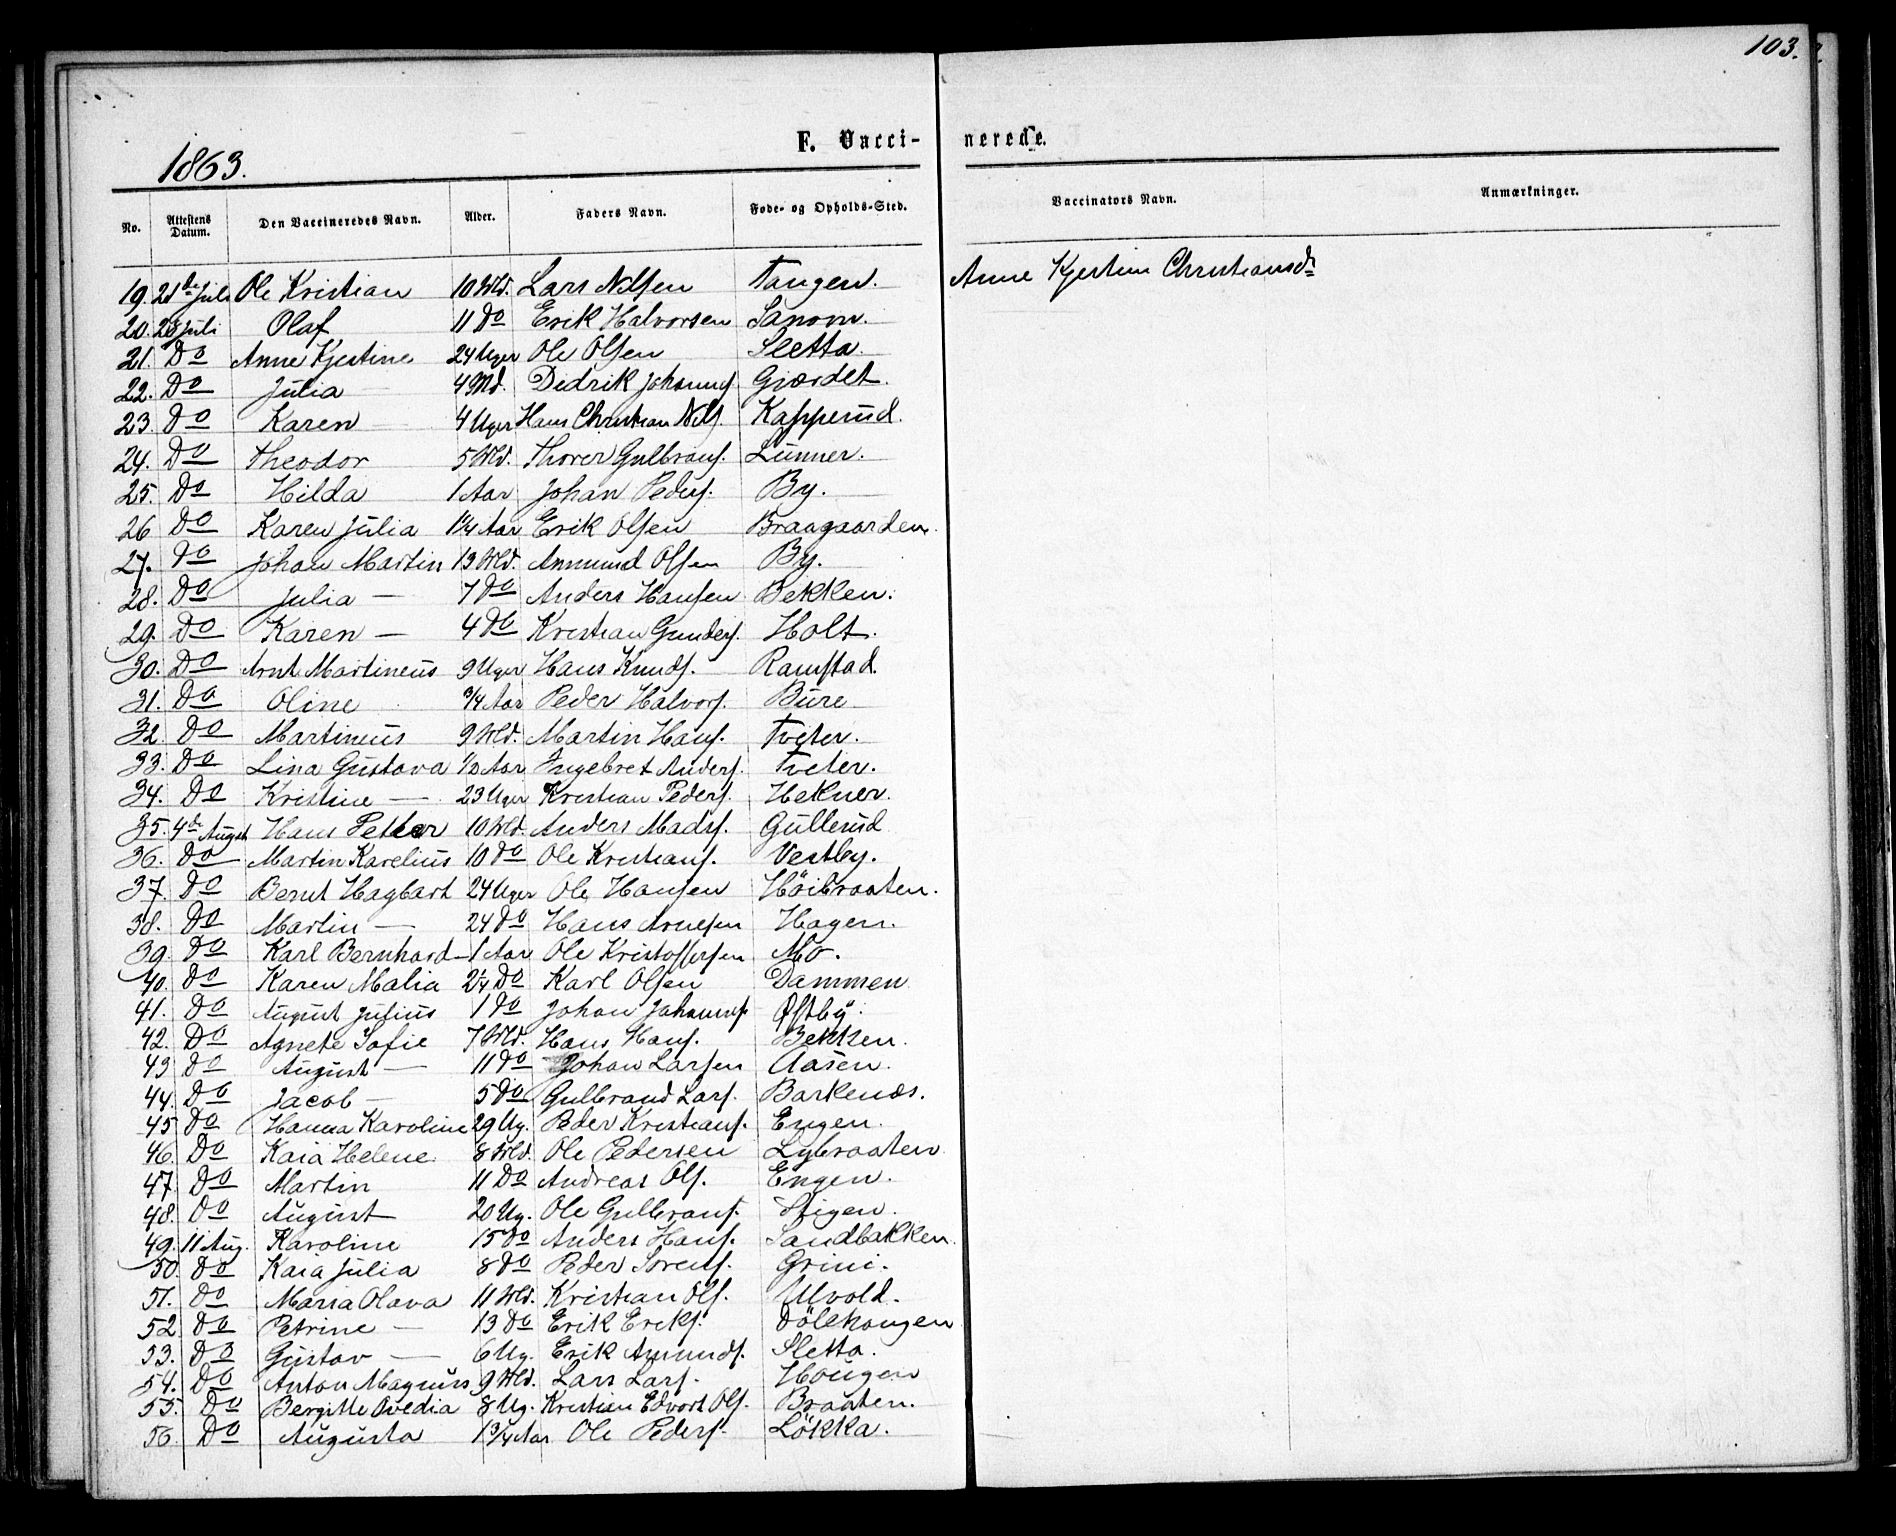 103.
1863.
F. Vacci-nerede.
No. Attestens Datum. Den Vaccineredes Navn. Alder. Faders Navn. Føde- og Opholds-Sted. Vaccinators Navn. Anmærkninger.
19. 21de Juli Ole Kristian 10 Md. Lars Nilsen Tangen. Anne Kjestine Christiansdr
20. 28 Juli Olaf 11 Do Erik Halvorsen Sanom.
21. Do Anne Kjestine 24 Uger Ole Olsen Sletta.
22. Do Julia 4 Md. Didrik Johannes. Gjærdet.
23. Do Karen 4 Uger Hans Christian Nils. Kapperud.
24. Do Theodor 5 Md. Thorer Gulbrans. Lunner.
25. Do Hilda 1 Aar Johan Peders. By.
26 Do Karen Julia 1¼ Aar Erik Olsen Braagaarden.
27. Do Johan Martin 13 Md. Anmund Olsen By.
28. Do Julia — 7 Do Anders Hansen Bekken.
29. Do Karen — 4 Do Kristian Gunders. Holt.
30. Do Arnt Martineus 9 Uger Hans Knuds. Ramstad.
31. Do Oline ¾ Aar Peder Halvors. Bure
32. Do Martineus 9 Md. Martin Hans. Tveter.
33. Do Lina Gustava ½ Aar Ingebret Anders. Tveter.
34. Do Kristine — 23 Uger Kristian Peders. Hekner.
35. 4de August Hans Petter 10 Md. Anders Mads. Gullerud
36. Do Martin Karelius 10 Do Ole Kristians. Vestby.
37. Do Bernt Hagbart 24 Uger Ole Hansen Höibraaten.
38. Do Martin — 24 Do Hans Arnesen Hagen.
39. Do Karl Bernhard — 1 Aar Ole Kristoffersen Mo.
40. Do Karen Malia 2¼ Do Karl Olsen Dammen
41. Do August Julius 1 Do Johan Johannes. Østby.
42. Do Agnete Sofie 7 Md. Hans Hans. Bekken.
43 Do August — 11 Do Johan Larsen Aasen.
44. Do Jacob — 5 Do Gulbrand Lars. Barkenæs.
45 Do Hanna Karoline 29 Ug. Peder Kristians. Engen.
46. Do Kaia Helene. 8 Md. Ole Pedersen Lybraaten
47. Do Martin 11 Do Andreas Ols. Engen.
48. Do August 20 Ug. Ole Gulbrans. Stigen.
49. 11 Aug. Karoline 15 Do Anders Hans. Sandbakken.
50. Do Kaia Julia 8 Do Peder Sorens. Grini.
51. Do Maria Olava 11 Md. Kristian Ols. Ulvold.
52. Do Petrine — 13 Do Erik Eriks. Dölehaugen
53. Do Gustav — 6 Ug. Erik Amunds. Sletta.
54. Do Anton Magnus 9 Md. Lars Lars. Hougen
55. Do Bergitte Ovedia 8 Ug. Kristian Edvart Ols. Braaten.
56. Do Augusta 1¾ Aar Ole Peders. Lökka.